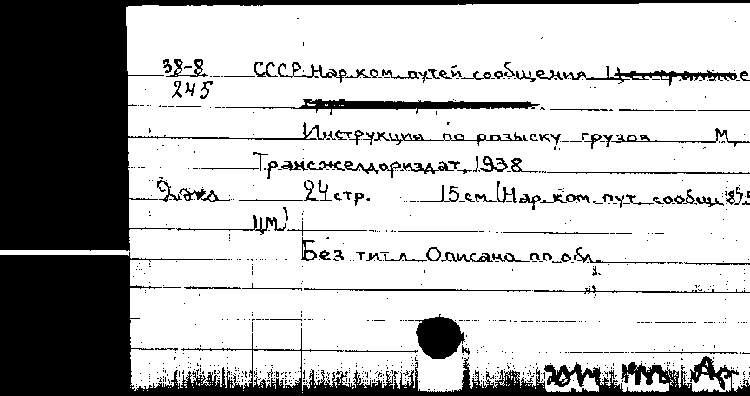 38-8 СССР. Нар. ком. путей сообщения.
245
Инструкция по розыску грузов. М,
Трансжелдориздат, 1938
2 экз 24 стр. 15 см (Нар. ком. пут. сообщ
ЦМ)
Без тит. л. Описано по обл.